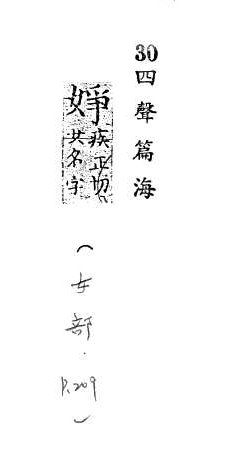 30四聲篇海
婙
疾正切
名字
(女部.P.209)